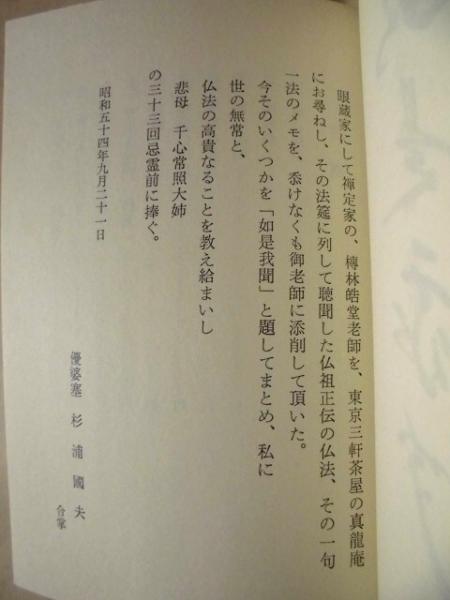 眼蔵家にして禅定家の、榑林皓堂老師を、東京三軒茶屋の真龍庵
にお尋ねし、その法筵に列して聴聞した仏祖正伝の仏法、その一句
一法のメモを、忝けなくも御老師に添削して頂いた。
今そのいくつかを「如是我聞」と題してまとめ、私に
世の無常と、
仏法の高貴なることを教え給まいし
悲母　千心常照大姉
の三十三回忌霊前に捧ぐ。
昭和五十四年九月二十一日
優婆塞　杉浦國夫
合掌